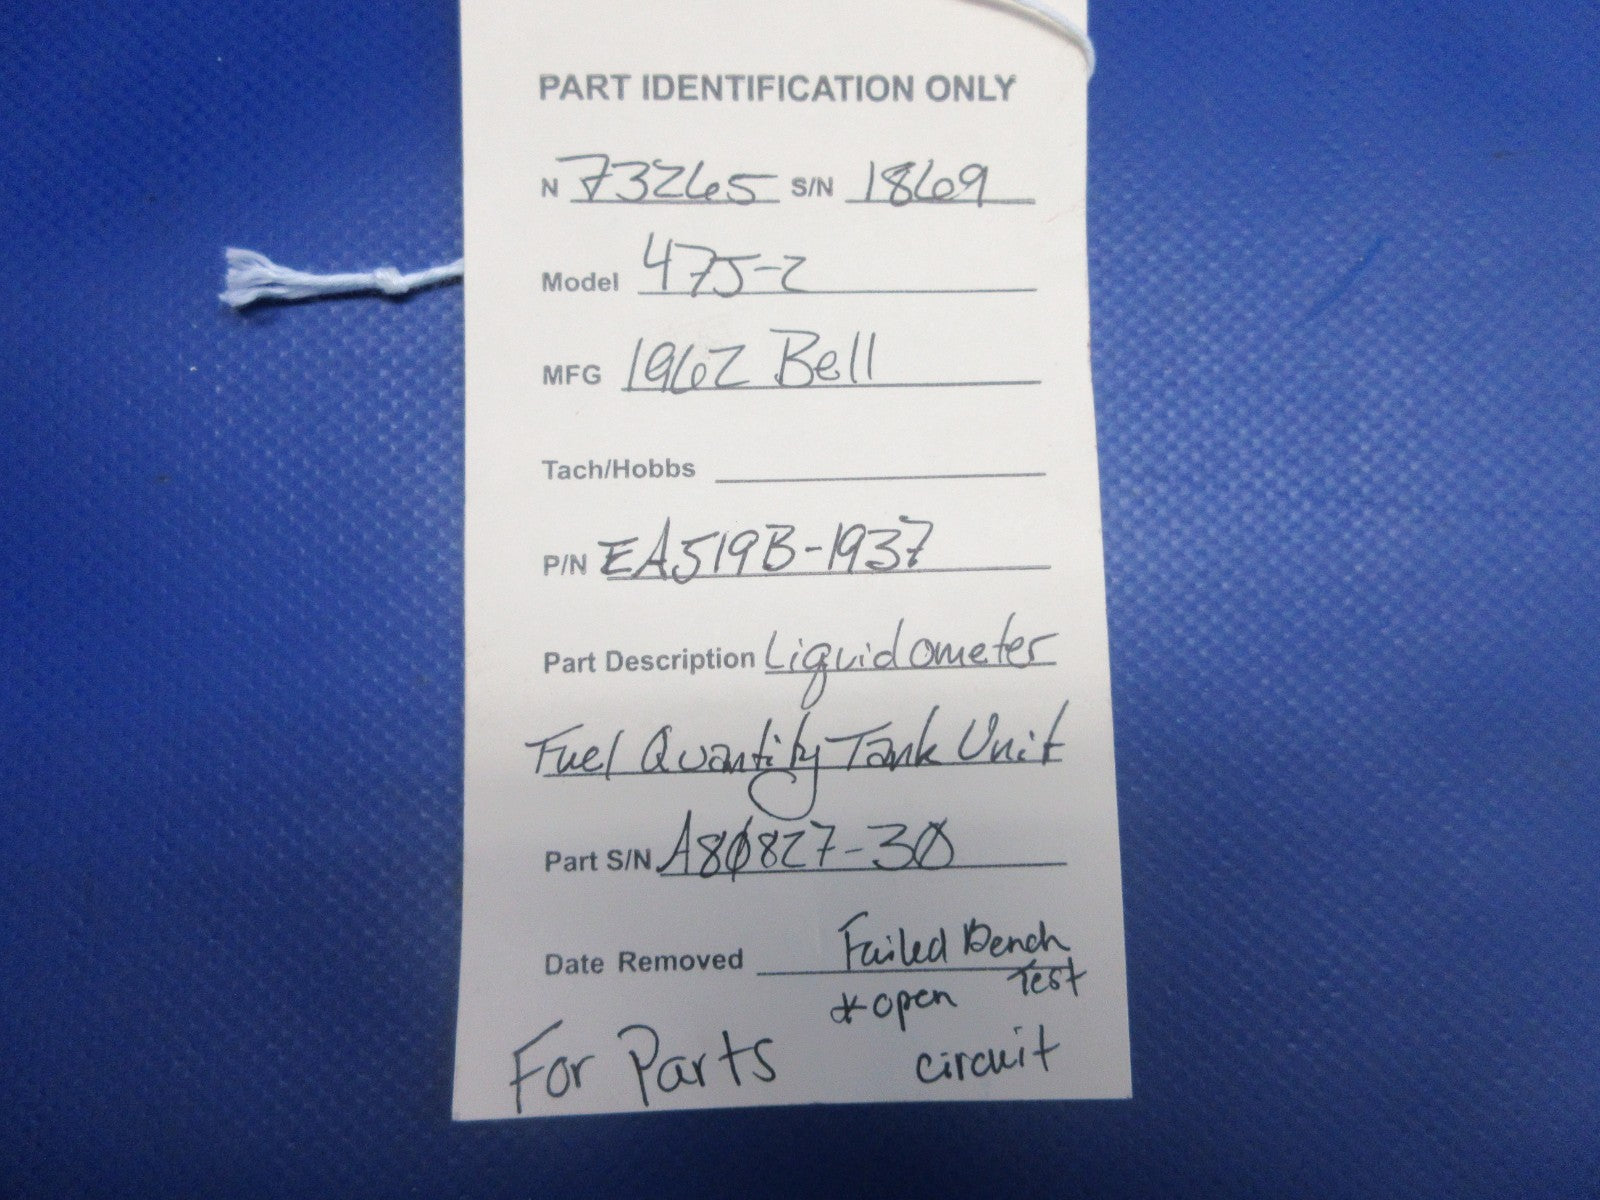 PART IDENTIFICATION ONLY
N 73265 S/N 1869
Model 47J-2
MFG 1962 Bell
Tach/Hobbs
P/N EA519B-1937
Part Description Liquidometer
Fuel Quantity Tank Unit
Part S/N A80827-30
Date Removed Failed Bench
Test
*open
circuit
For Parts